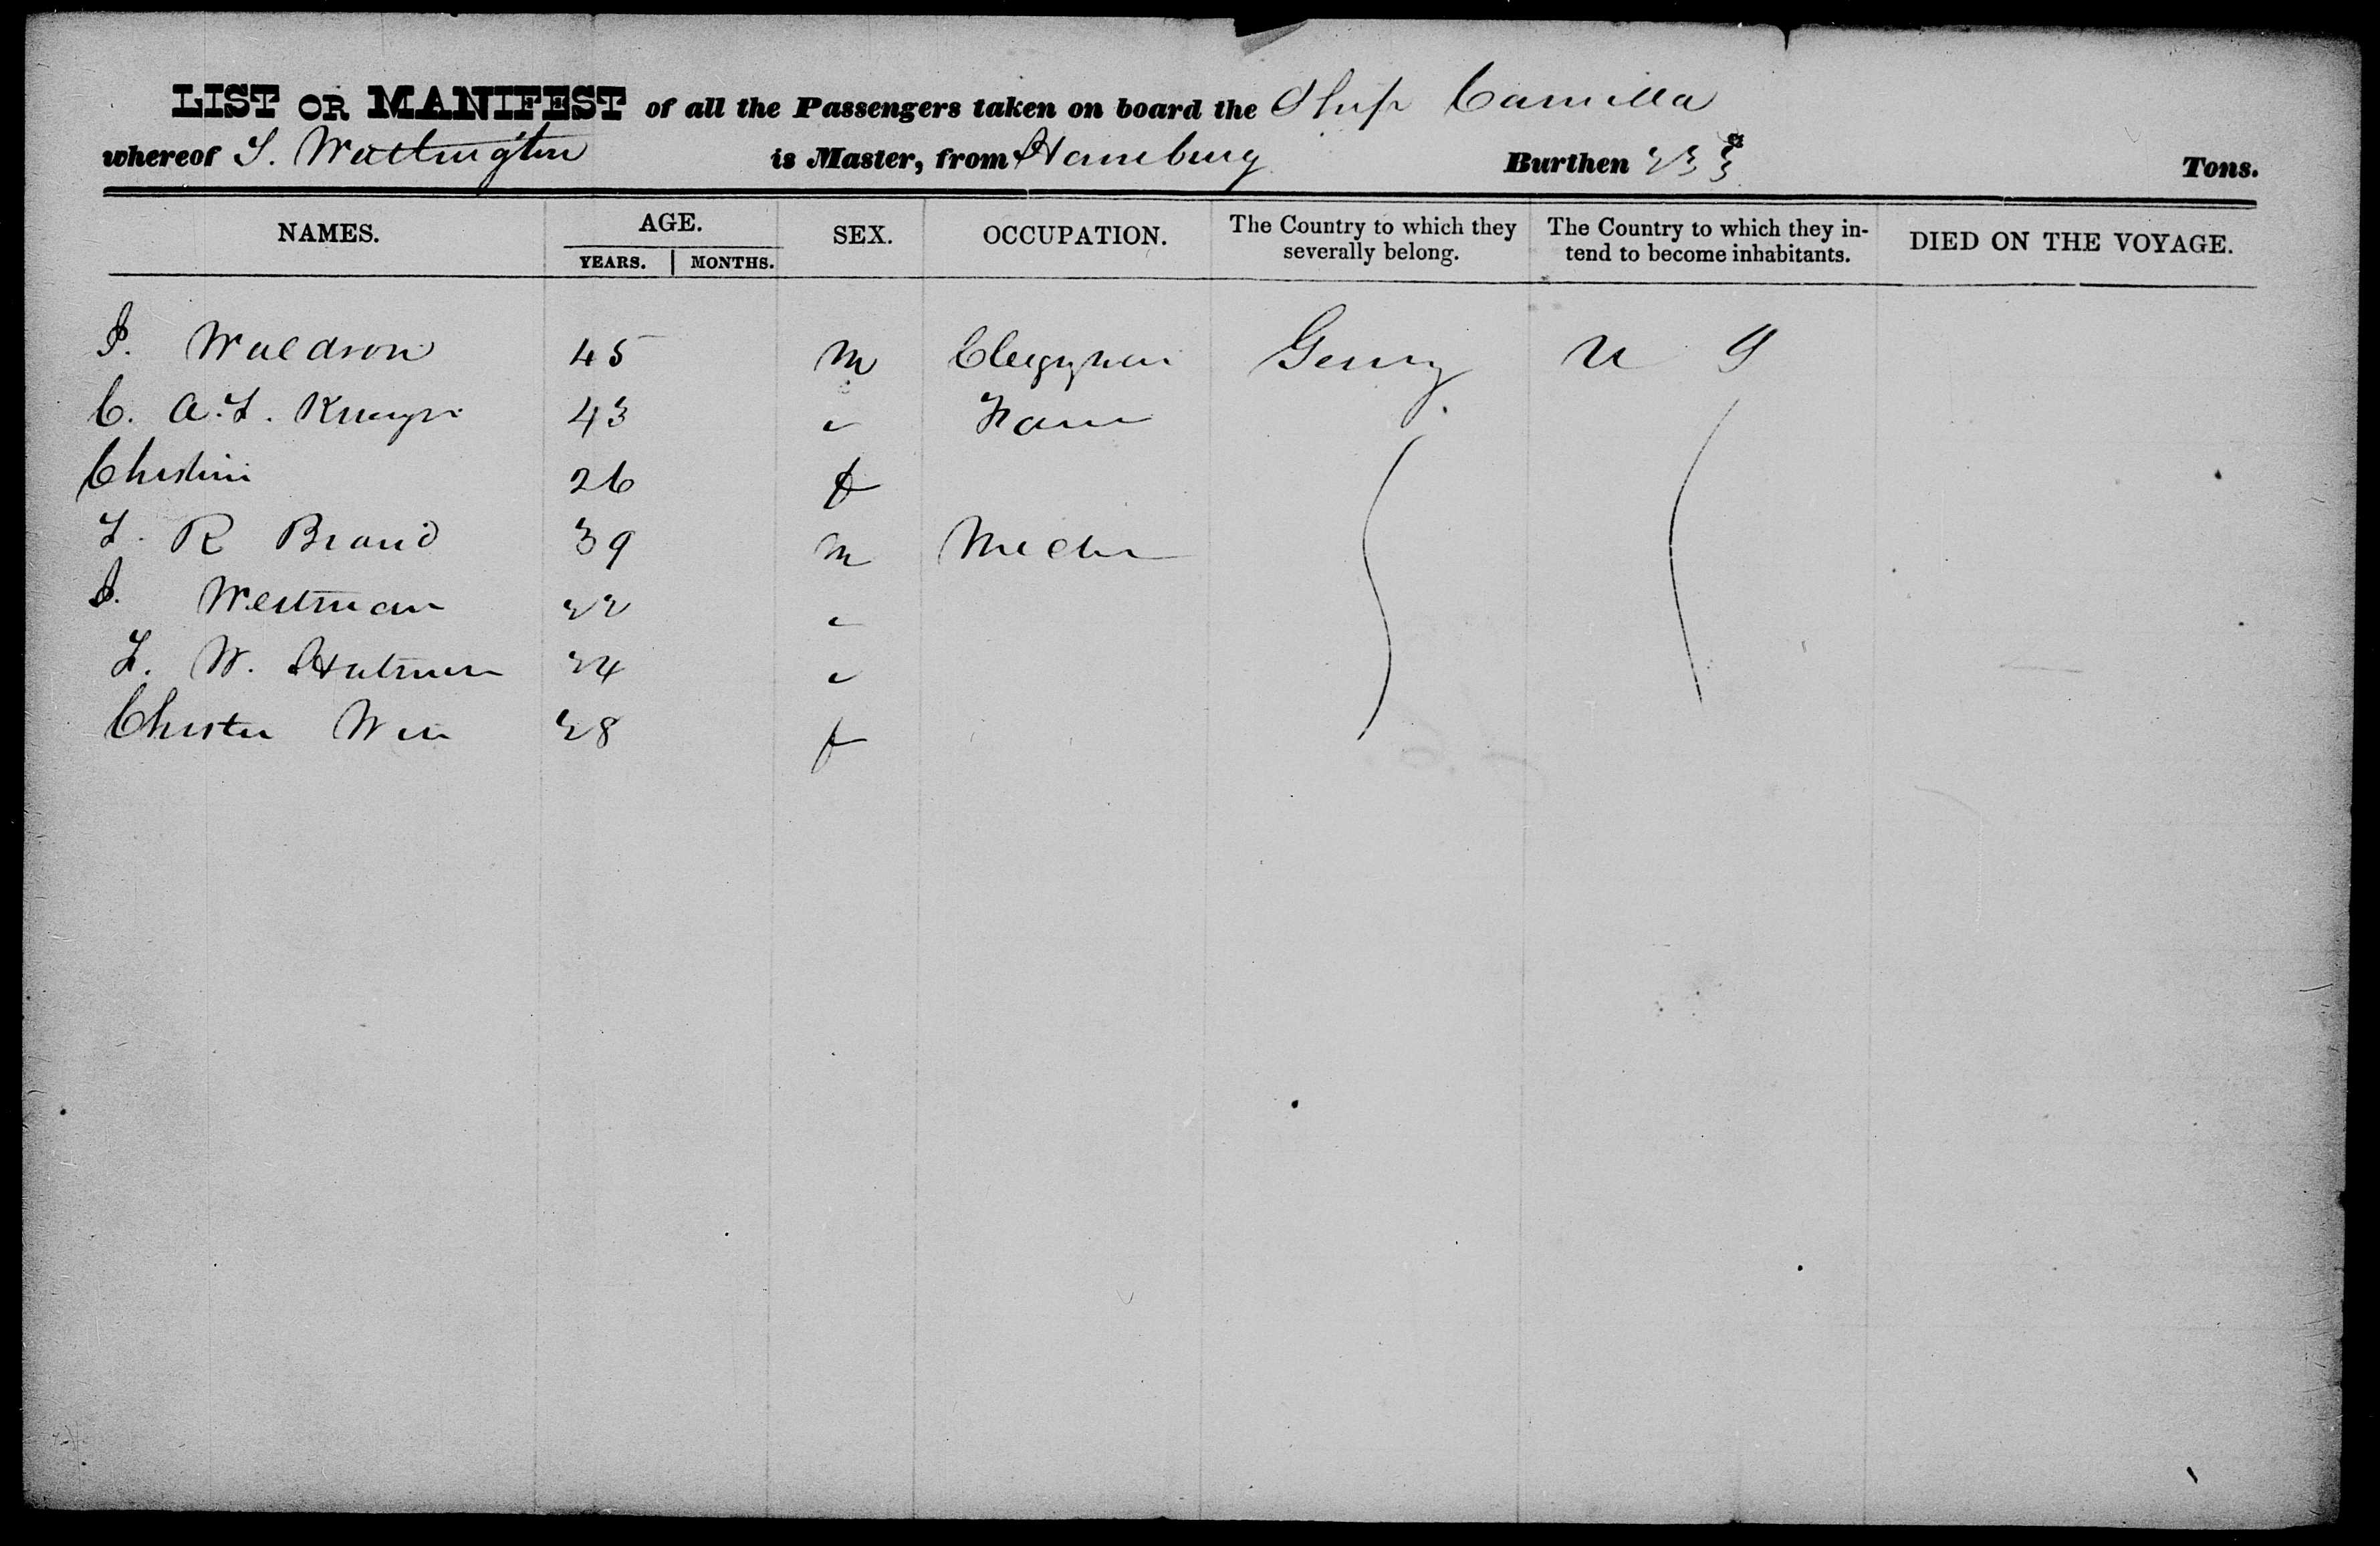 LIST OR MANIFEST of all the Passengers taken on board the Ship Camilla
whereof S. Watlington is Master, from Hamburg Burthen 233 Tons.
NAMES. AGE. SEX. OCCUPATION. The Country to which they severally belong. The Country to which they intend to become inhabitants. DIED ON THE VOYAGE.
YEARS. MONTHS.
J. Waldron 45 m Clergyman Germy U S
C. A. L. 43 " Farm
Christin 26 f
L. R Brand 39 m Mechn
J. Westman 22 "
L. W. 24 "
28 f